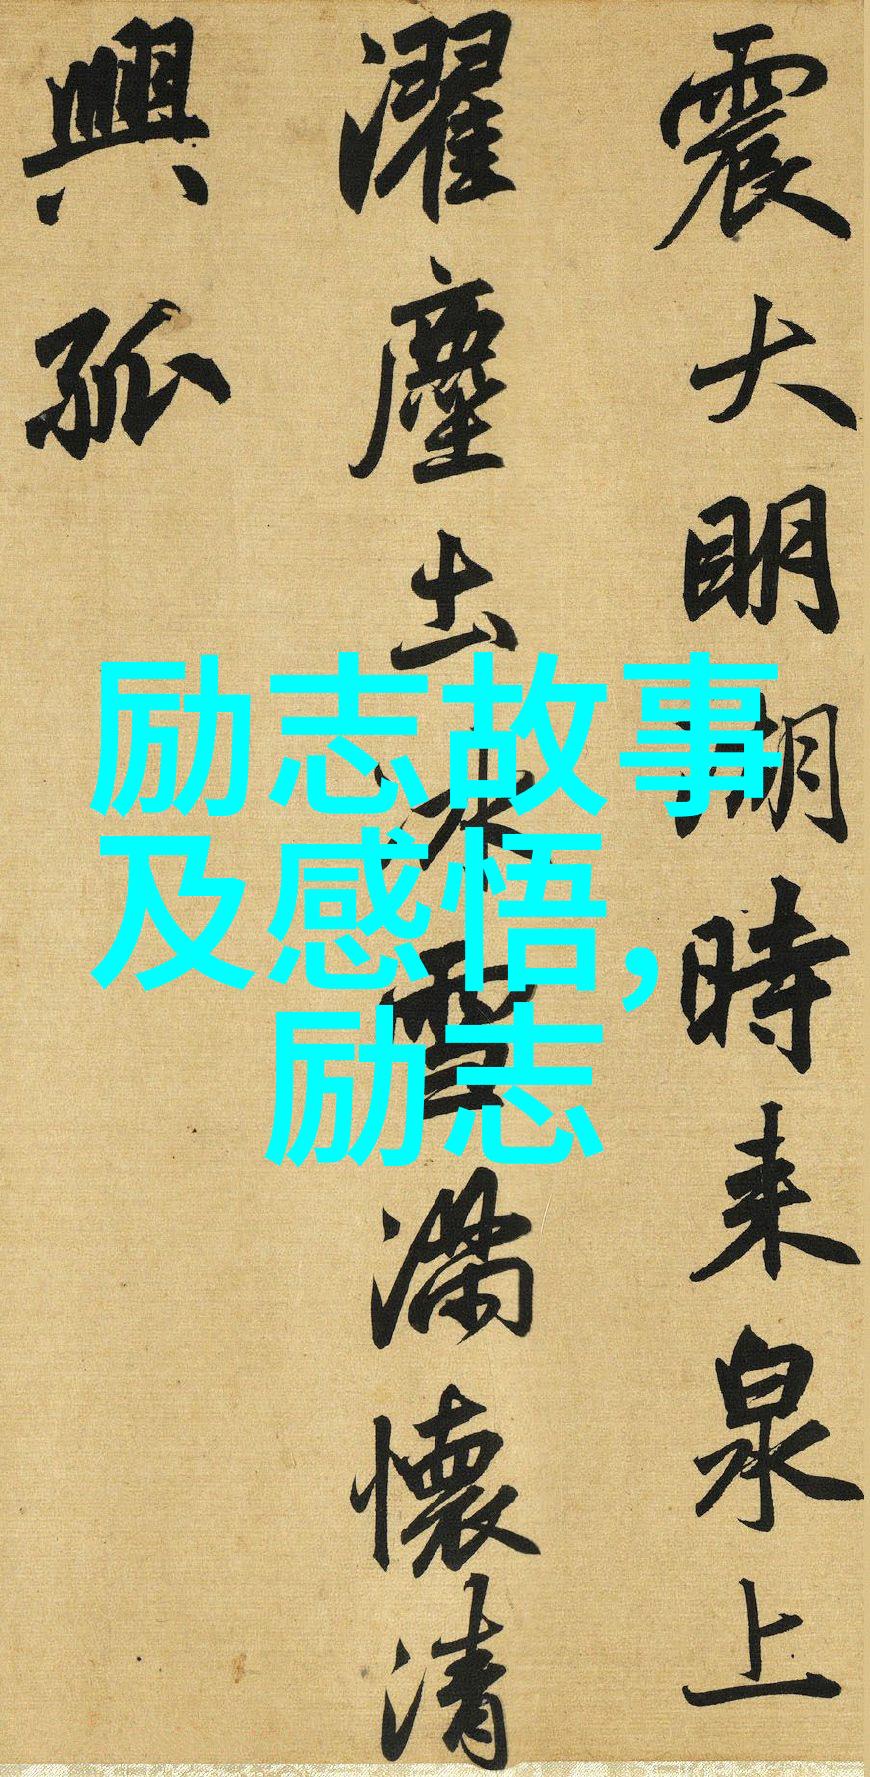 震大明湖時来泉上
濯塵土冰雪滿懷清
興孤
励志故事
及感悟,
励志